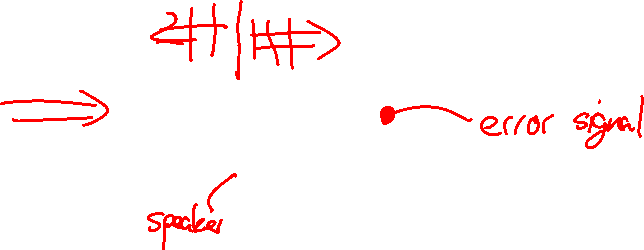 error signal
speaker